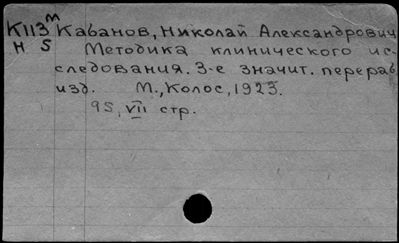 К113м Кабанов, Николай Александрович
н 5 Методика клинического ис-
следования. 3-е значит. перераб
изд. М., Колос, 1923.
95, VII стр.